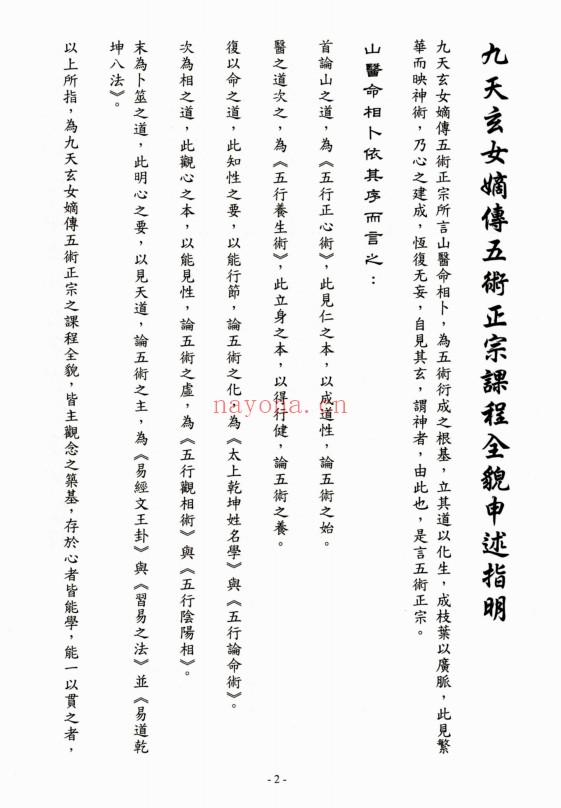 九天玄女嫡傳五術正宗課程全貌申述指明
九天玄女嫡傳五術正宗所言山醫命相卜，為五術衍成之根基，立其道以化生，成枝葉以廣脈，此見繁
華而映神術，乃心之建成，恆復无妄，自見其玄，謂神者，由此也，是言五術正宗。
山醫命相卜依其序而言之：
首論山之道，為《五行正心術》，此見仁之本，以成道性，論五術之始。
醫之道次之，為《五行養生術》，此立身之本，以得行健，論五術之養。
復以命之道，此知性之要，以能行節，論五術之化，為《太上乾坤姓名學》與《五行論命術》。
次為相之道，此觀心之本，以能見性，論五術之虛，為《五行觀相術》與《五行陰陽相》。
末為卜筮之道，此明心之要，以見天道，論五術之主，為《易經文王卦》與《習易之法》並《易道乾
坤八法》。
以上所指，為九天玄女嫡傳五術正宗之課程全貌，皆主觀念之築基，存於心者皆能學，能一以貫之者，
nayona.cn
- 2 -